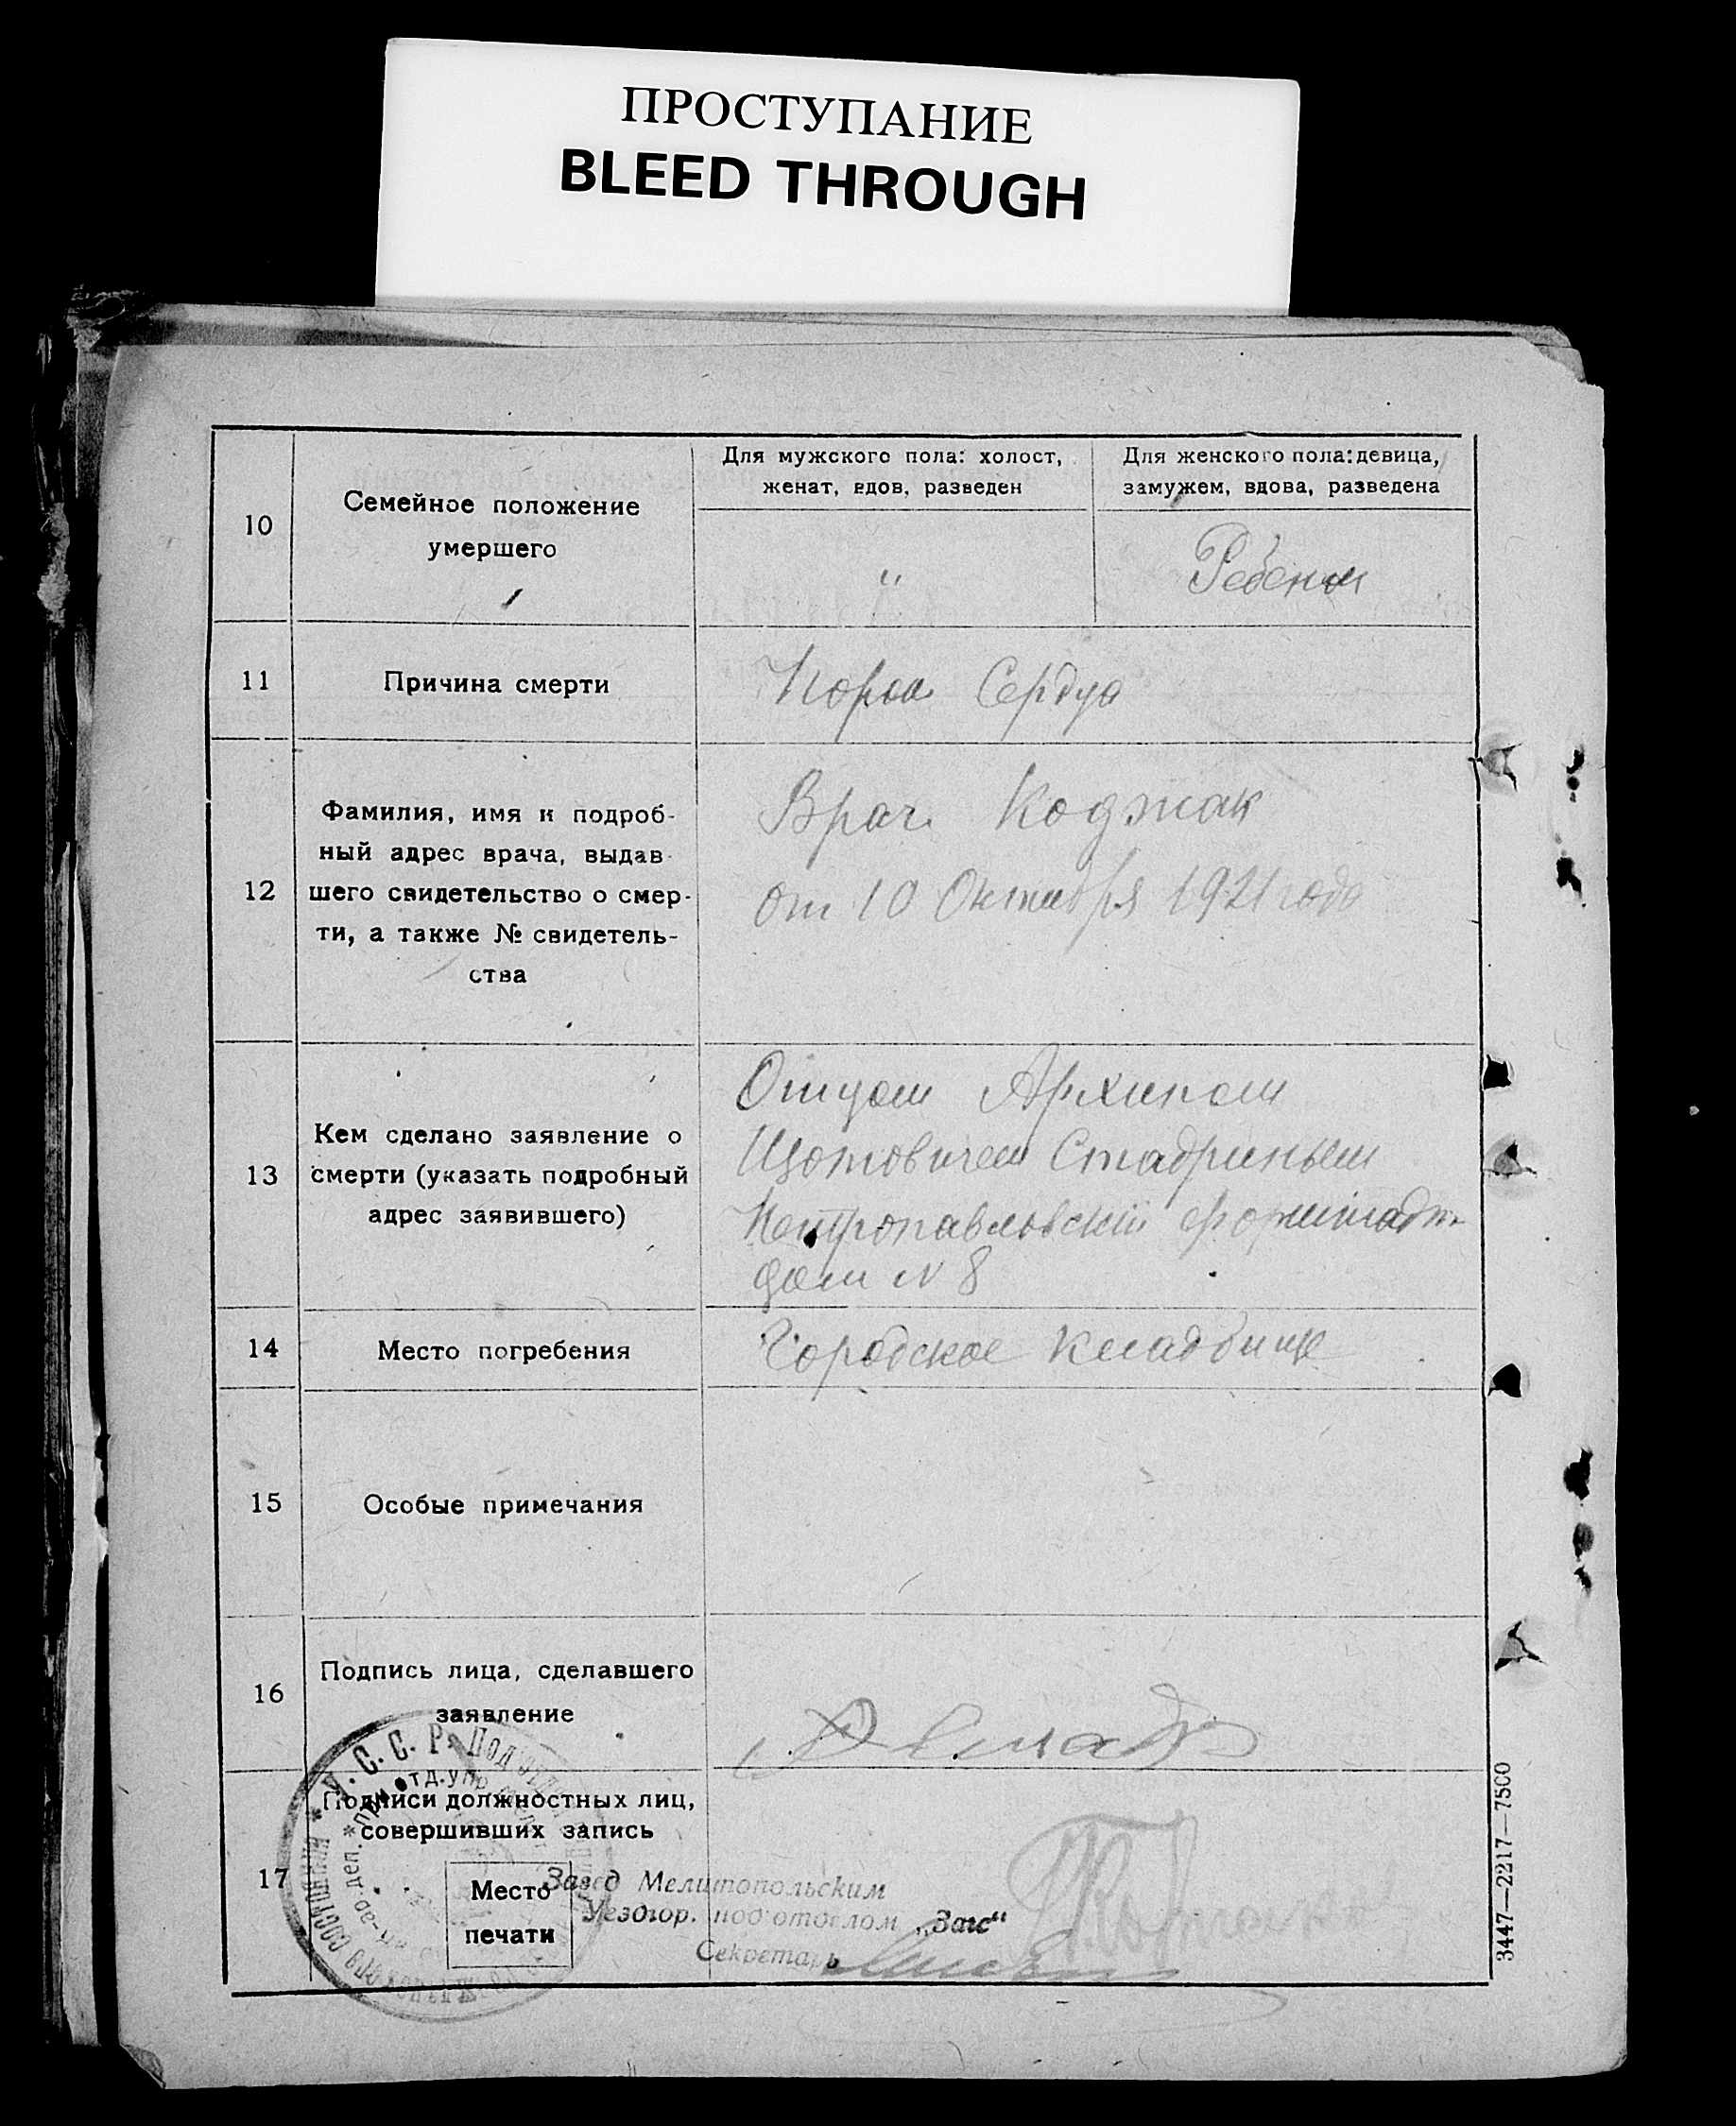 ПРОСТУПАНИЕ
BLEED THROUGH
10
Семейное положение
умершего
Для мужского пола: холост,
женат, вдов, разведен
"
Для женского пола: девица,
замужем, вдова, разведена
Ребенок
11
Причина смерти
Порок Сердца
12
Фамилия, имя и подроб-
ный адрес врача, выдав-
шего свидетельство о смер-
ти, а также № свидетель-
ства
Врач Коджак
от 10 Октября 1921 года
13
Кем сделано заявление о
смерти (указать подробный
адрес заявившего)
Отцом Архипом
Стадриным
Петропавловский форштадт
дом N 8
14
Место погребения
Городское Кладбище
15
Особые примечания
16
Подпись лица, сделавшего
заявление
17
Подписи должностных лиц,
совершивших запись
Место
печати
Завед Мелитопольским
Уездгор. подотделом „Загс“
Секретарь
У. С. С. Р. Подотдел
при отд. упр.
состояния
3447—2217—7500